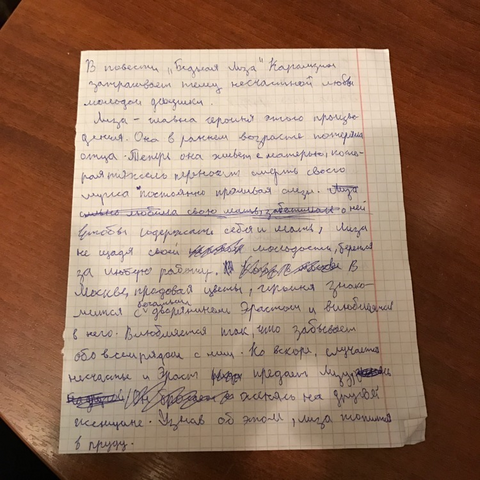 В повести „Бедная Лиза" Карамзин
затрагивает тему несчастной любви
молодой девушки.
Лиза – главна героиня этого произве-
дения. Она в раннем возрасте потеряла
отца. Теперь она живет с матерью, кото-
рая тяжело переносит смерть своего
мужа "постоянно проливая слезы. Лиза
сильно любила свою мать, заботилась о ней
Чтобы содержать себя и мать, Лиза
не щадя своей молодости, берется
за любую работу. В
Москве, продавая цветы, героиня знако-
мится с богатым дворянином Эрастом и влюбляется
в него. Влюбляется так, что забывает
обо всем рядом с ним. Но вскоре, случается
несчастье и Эраст предает Лизу,
женясь на другой
женщине. Узнав об этом, Лиза топится
в пруду.